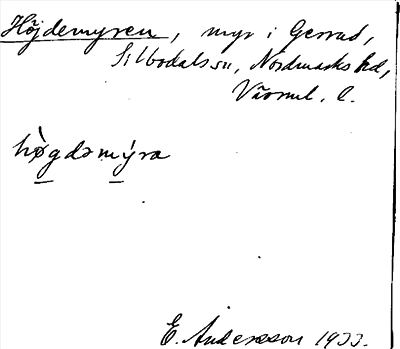 Höjdemyren, myr i Gersud,
Silbodals sn, Nordmarks hd,
Värml. l.
hø̀gdəmýra
E. Andersson 1933.